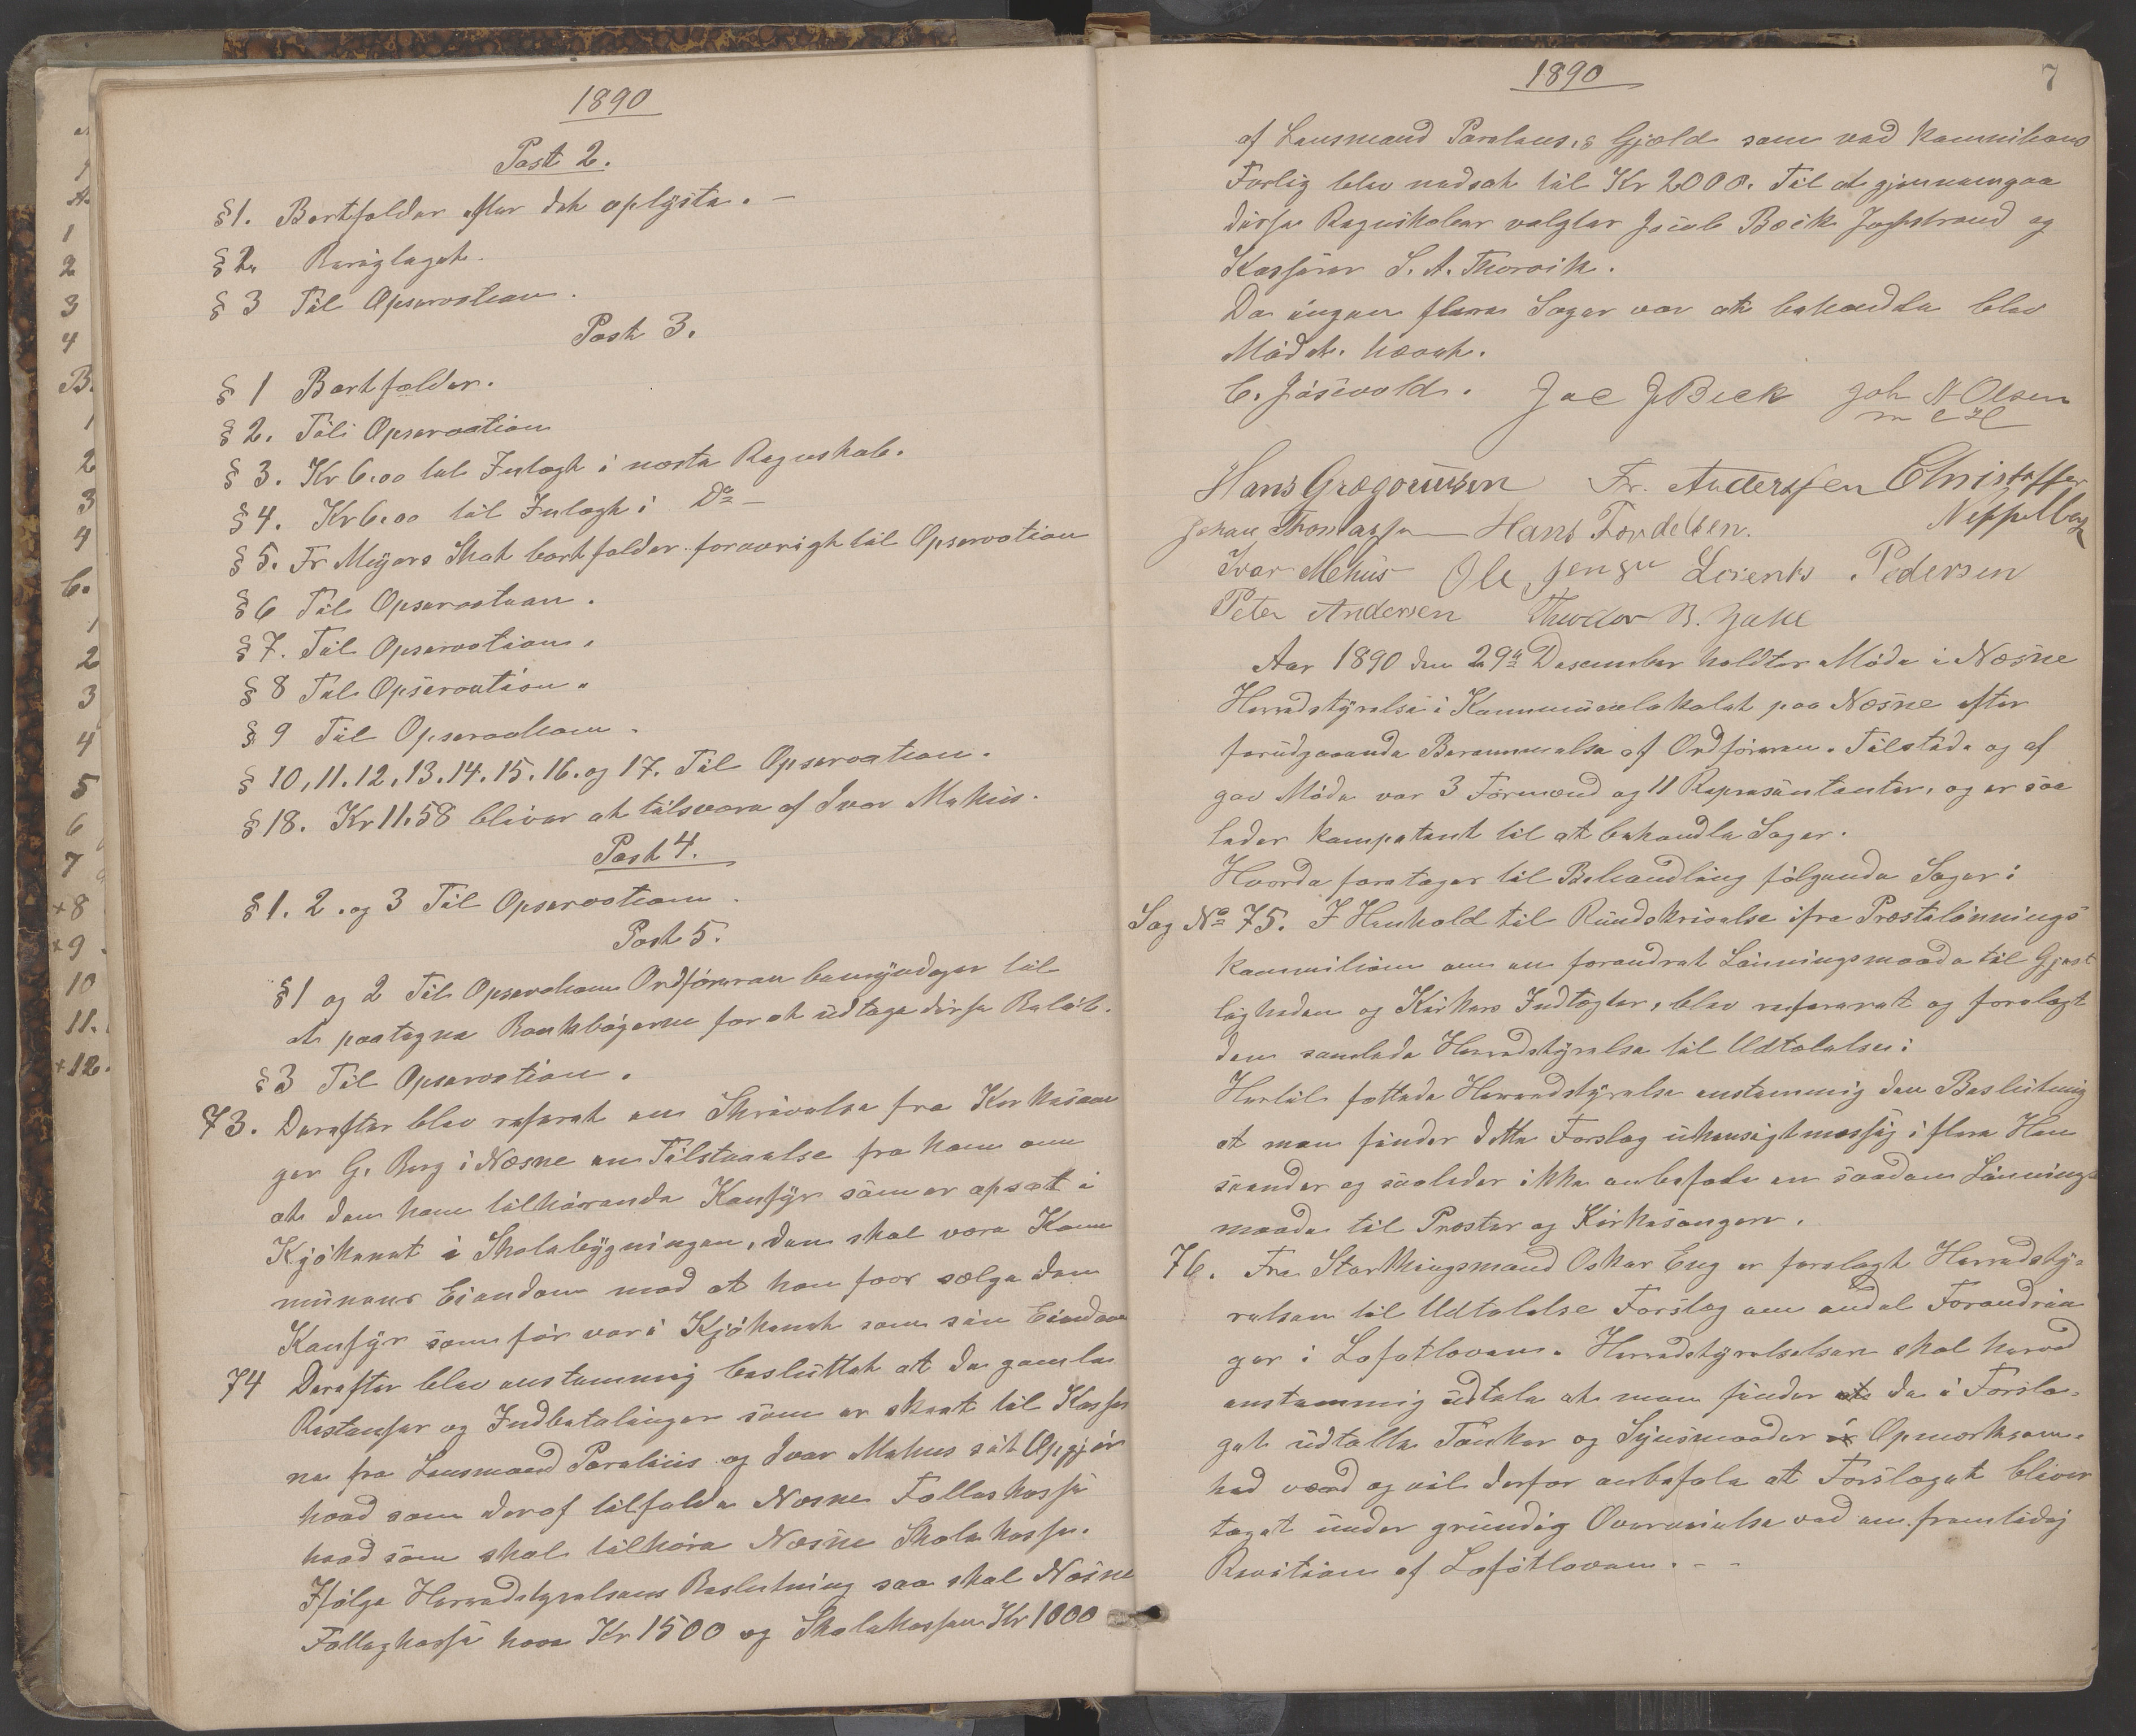 1890
Post 2.
§1. Bortfalder efter det oplyste. -
§2. Beriglaget.
§3 Til Opservation.
Post 3.
§1 Bortfalder.
§2. Til Opservation
§3. Kr 6.00 til Indtægt i næste Regnskab.
§4. Kr 6.00 til Indtægt i Do -
§5. Fr Meyers Skat bortfalder forøvrigt til Opservation
§6 Til Opservation.
§7. Til Opservation.
§8 Til Opservation.
§9 Til Opservation.
§10, 11. 12, 13. 14. 15. 16. og 17. Til Opservation.
§18. Kr 11.58 bliver at tilsvare af Ivar Mehus.
Post 4.
§1. 2. og 3 Til Opservation.
Post 5.
§1 og 2 Til Opservation Ordføreren bemyndiges til
at paategne Bankbøgerne for at udtage disse Beløb.
§3 Til Opservation.
73. Derefter blev referert en Skrivelse fra Kirkesan
ger G. Berg i Næsne en Tilstaaelse fra ham om
at den ham tilhørende Komfyr som er opsat i
Kjøkkenet i Skolebygningen, den skal være Kom
munens Eiendom mod at han faar sælge den
Komfyr som før var i Kjøkkenet som sin Eiendom
74 Derefter blev enstemmig besluttet at de gamle
Restanser og Indbetalinger som er skeet til Kasse
ne fra Lensmand Paralius og Ivar Mehus sit Opgjør
hvad som deraf tilfalder Næsne Fattigkasse
hvad som skal tilhøre Næsne Skolekasse.
Ifølge Herredstyrelsens Beslutning saa skal Næsne
Fattigkasse have Kr 1500 og Skolekassen Kr 1000
1890
7
af Lensmand Paralius,s Gjæld som ved Kommitions
Forlig blev nedsat til Kr 2000. Til at gjennemgaa
disse Regnskaber valgtes Jacob Beck Jægtstrand og
Kasserer S. A. Thorvik.
Da ingen flere Sager var at behandle blev
Mødet hævet.
C. Jøsevold. Jac J Beck Joh N Olsen
Hans Grægoriussen Fr. Anderssen Christoffer
Neppelberg
Johan Thomassen Hans Fordelsen.
Ivar Mehus Ole Jensen Lorents Pedersen
Peter Andersen Theodor B. Zahl
Aar 1890 den 29de Desember holdtes Møde i Næsne
Herredstyrelse i Kommunelokalet paa Næsne efter
forudgaaende Berammelse af Ordføreren. Tilstede og af
gav Møde var 3 Formænd og 11 Repræsentanter, og er saa
ledes kompetent til at behandle Sager.
Hvorda foretages til Behandling følgende Sager:
Sag No 75. I Henhold til Rundskrivelse ifra Prestelønnings
kommition om en forandret Lønningsmaade til Gjest
ligheden og Kirkers Indtægter, blev refereret og forelagt
den samlede Herredstyrelse til Udtalelse:
Hertil fattede Herredstyrelse enstemmig den Beslutning
at man finder dette Forslag uhensigtmessig i flere Hen
seender og saaledes ikke anbefale en saadan Lønnings
maade til Prester og Kirkesangere.
76. Fra Storthingsmand Oskar Eng er forelagt Herredsty=
relsen til Udtalelse Forslag om endel Forandrin
ger i Lofotloven. Herredstyrelselsen skal herved
enstemmig udtale at man finder at de i Forsla=
get udtalte Tanker og Synsmaader er Opmerksom=
hed værd og vil derfor anbefale at Forslaget bliver
taget under grundig Overveielse ved en fremtidig
Revition af Lofotloven. - -